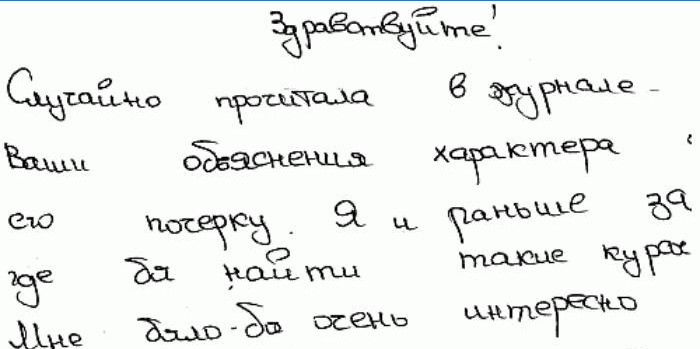 Здравствуйте!
Случайно прочитала в журнале
Ваши объяснения характера
его почерку. Я и раньше за
где бы найти такие курс
Мне было-бы очень интересно